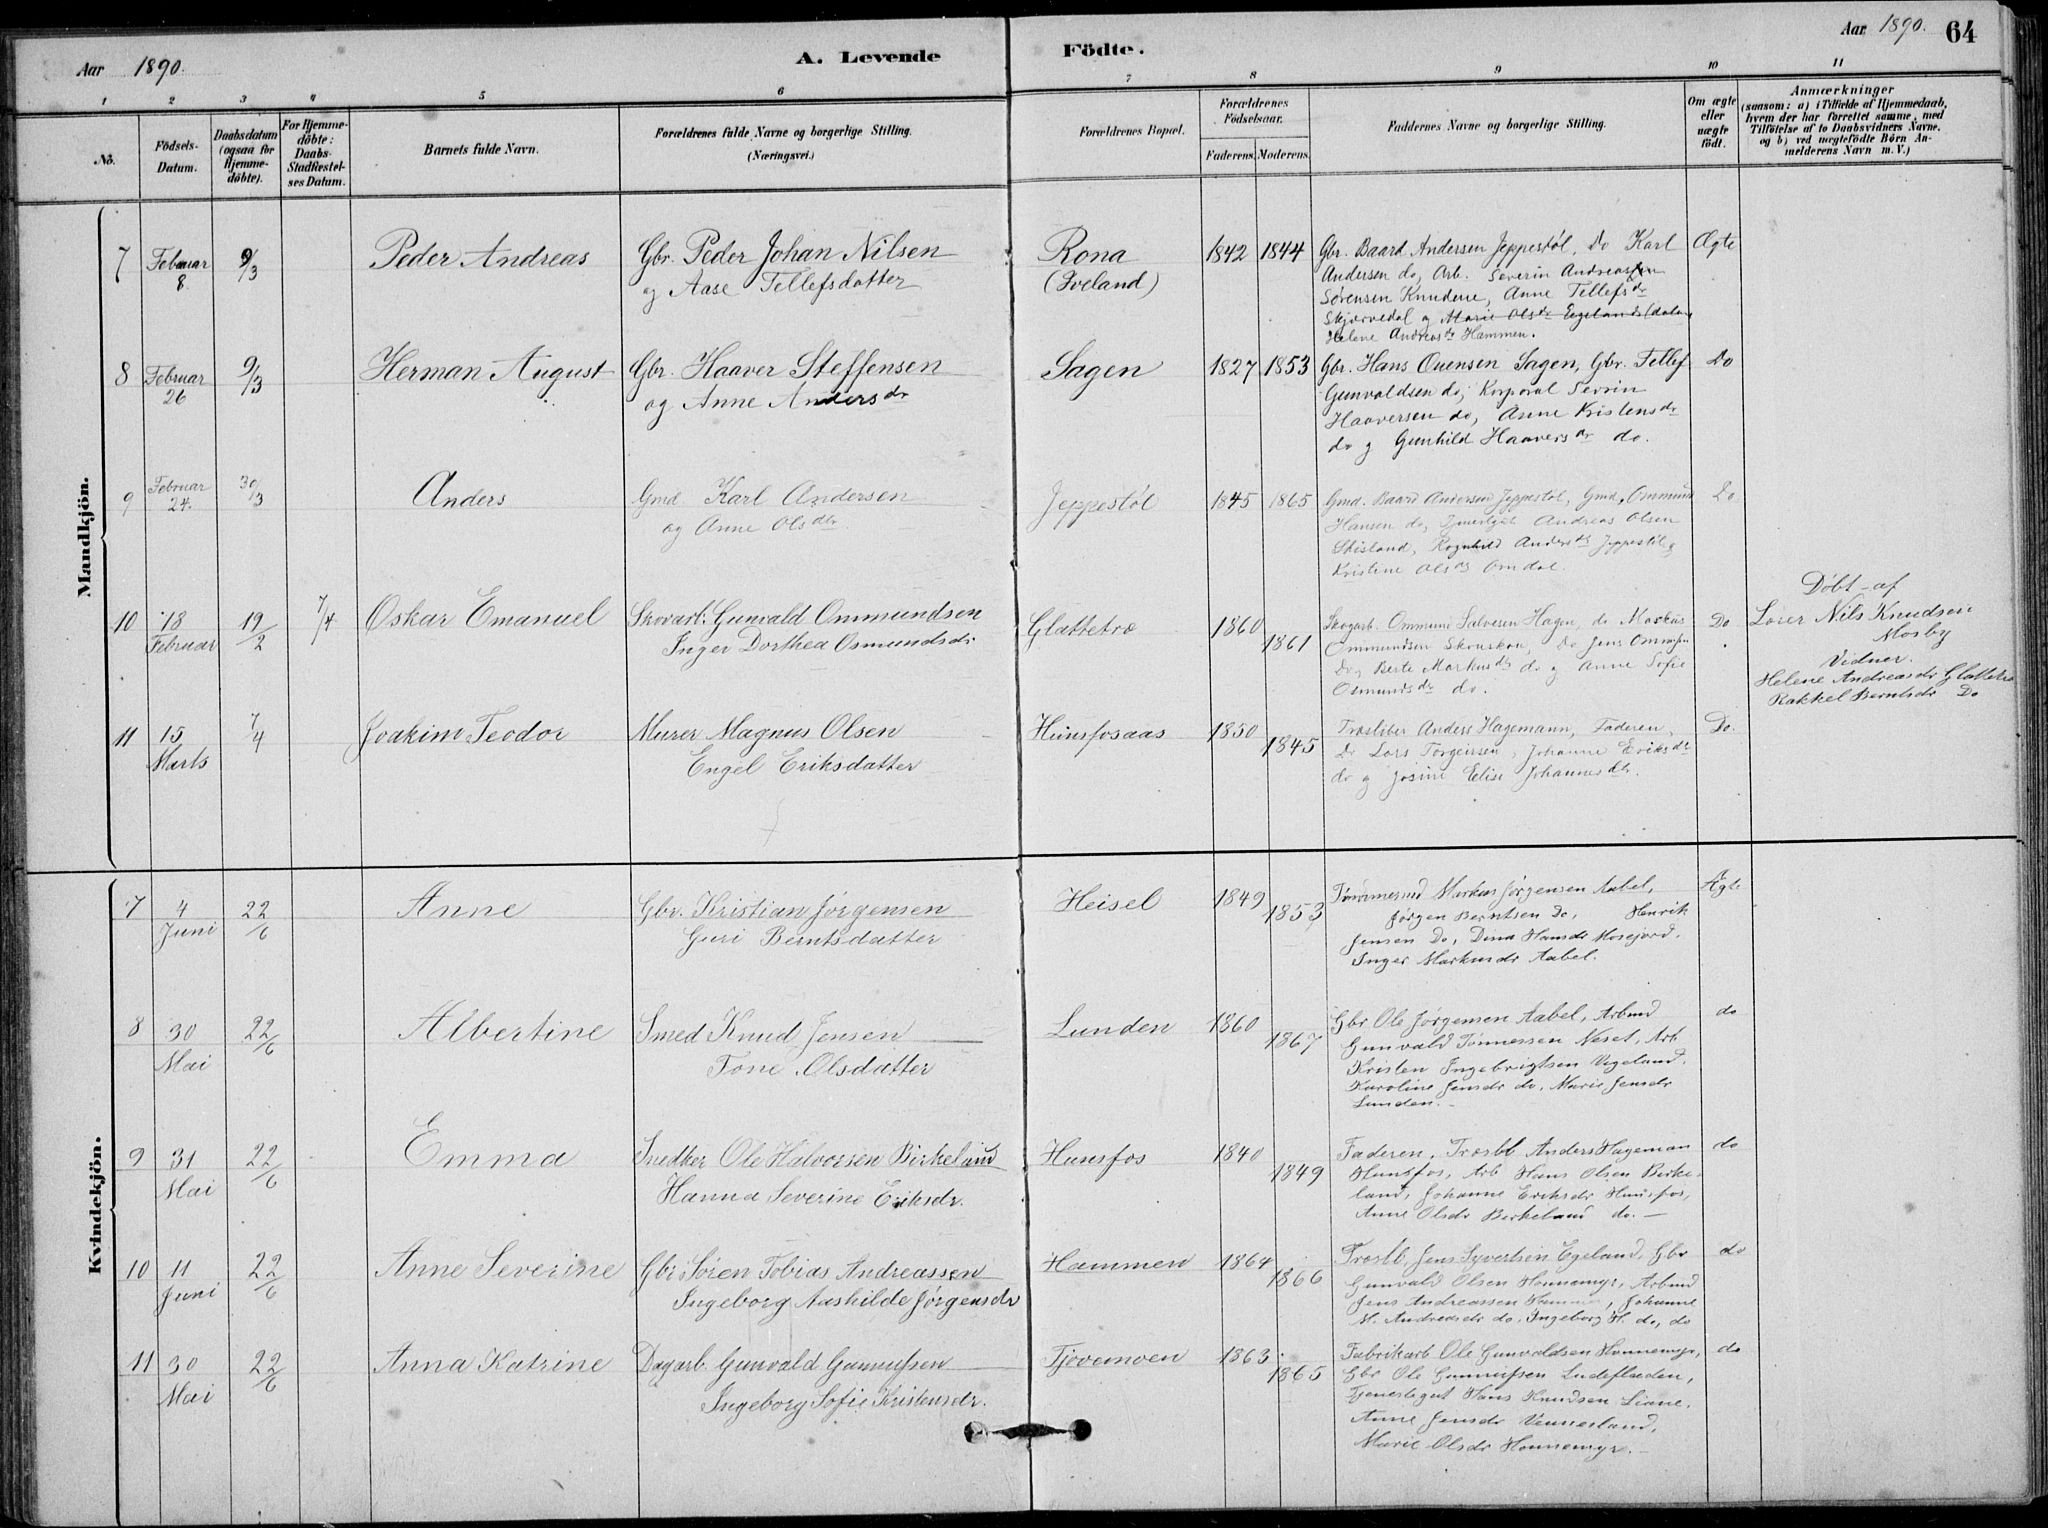 Aar 1890.
A. Levende
Födte.
Aar 1890. 64
1 2 3 4 5 6 7 8 9 10 11
No.
Födsels-
Datum.
Daabsdatum
(ogsaa for
Hjemme-
døbte).
For Hjemme-
døbte:
Daabs-
Stadfæstel-
ses Datum.
Barnets fulde Navn.
Forældrenes fulde Navne og borgerlige Stilling.
(Næringsvei.)
Forældrenes Bopæl.
Forældrenes
Födselsaar.
Faderens. Moderens.
Faddernes Navne og borgerlige Stilling.
Om ægte
eller
uægte
født.
Anmærkninger
(saasom: a) i Tilfælde af Hjemmedaab,
hvem der har forrettet samme, med
Tilföielse af to Daabsvidners Navne.
og b) ved uægtefödte Börn An-
melderens Navn m. V.)
Mandkjön.
7 Februar 8 9/3 Peder Andreas Gbr. Peder Johan Nilsen Rona 1842 1844 Gbr. Baard Andersen Jeppestøl, Do Karl Ægte
og Aase Tellefsdatter (Iveland) Andersen do, Arb. Severin Andreas
Sørensen Knudene, Anne Tellefsdr
Skjærvedal og Marie Olsdr Egeland
Helene Andreasdr Hammen.
8 Februar 26 9/3 Herman August Gbr. Haaver Steffensen Sagen 1827 1853 Gbr. Hans Ouensen Sagen, Gbr. Tellef Do
og Anne Andersdr Gunvaldsen do, Korporal Servin
Haaversen do, Anne Kristensdr
do og Gunhild Haaversdr do.
9 Februar 24. 30/3 Anders Gmd Karl Andersen Jeppestøl 1845 1865 Gmd. Baard Andersen Jeppestøl, Gmd. Ommund Do
og Anne Olsdtr Hansen do, Andreas Olsen
Stisland, Ragnhild Andersdtr Jeppestøl,
Kristine Olsdtr Omdal.
10 18 Februar 19/2 7/4 Oskar Emanuel Skovarb. Gunvald Ommundsen Glattetre 1860 1861 Skogarb. Ommund Salvesen Hagen, do Markus Do
Inger Dorthea Osmundsdr Ommundsen Skouskou, Do Jens
Do, Berte Markusdr do og Anne Sofie
Osmundsdr do.
Døbt af
Lærer Nils Knudsen
Mosby
Vidner.
Helene Andreasdr Glattetre
Rakkel Berntsdr Do
11 15 Marts 7/4 Joakim Teodor Murer Magnus Olsen Hunsfosaas 1850 1845 Træsliber Anders Hagemann, Faderen, Do.
Engel Eriksdatter Do Lars Torgeirsen, Johanne Eriksdtr
do og Josine Elise Johannesdtr.
Kvindekjön.
7 4 Juni 22/6 Anne Gbr. Kristian Jørgensen Heisel 1849 1853 Tømmermd Markus Jørgensen Aabel, Ægte
Guri Berntsdatter Jørgen Berntsen Do, Henrik
Jensen Do, Dina Hansdr Mosejord.
Inger Markusdr Aabel.
8 30 Mai 22/6 Albertine Smed Knud Jensen Lunden 1860 1867 Gbr Ole Jørgensen Aabel, Arbmd do
Tone Olsdatter Gunvald Tønnessen Neset, Arb
Kristen Ingebrigtsen Vigeland.
Karoline Jensdr do, Marie Jensdr
Lunden.
9 31 Mai 22/6 Emma Snedker Ole Halvorsen Birkeland Hunsfos 1840 1849 Faderen, Træsbl Anders Hageman do
Hanna Severine Eriksdr. Hunsfos, Arb Hans Olsen Birke-
land, Johanne Eriksdr Hunsfos,
Anne Olsdr Birkeland do.
10 11 Juni 22/6 Anne Severine Gbr Søren Tobias Andreassen Hammen 1864 1866 Træslb. Jens Syvertsen Egeland, Gbr do
Ingeborg Aashilde Jørgensdr Gunvald Olsen Honnemyr, Arbmd
Jens Andreassen Hammen, Johanne
M. Andreasdr do, Ingeborg H. do, do
11 30 Mai 22/6 Anna Katrine Dagarb. Gunvald Gunnufsen Tjovemoen 1863 1865 Fabrikarb Ole Gunvaldsen Honnemyr, do
Ingeborg Sofie Kristensdr. Gbr Ole Gunnufsen Ludeflaeden,
Tjenestegut Hans Knudsen Liane,
Anne Jensdr Vennesland,
Marie Olsdr Honnemyr.